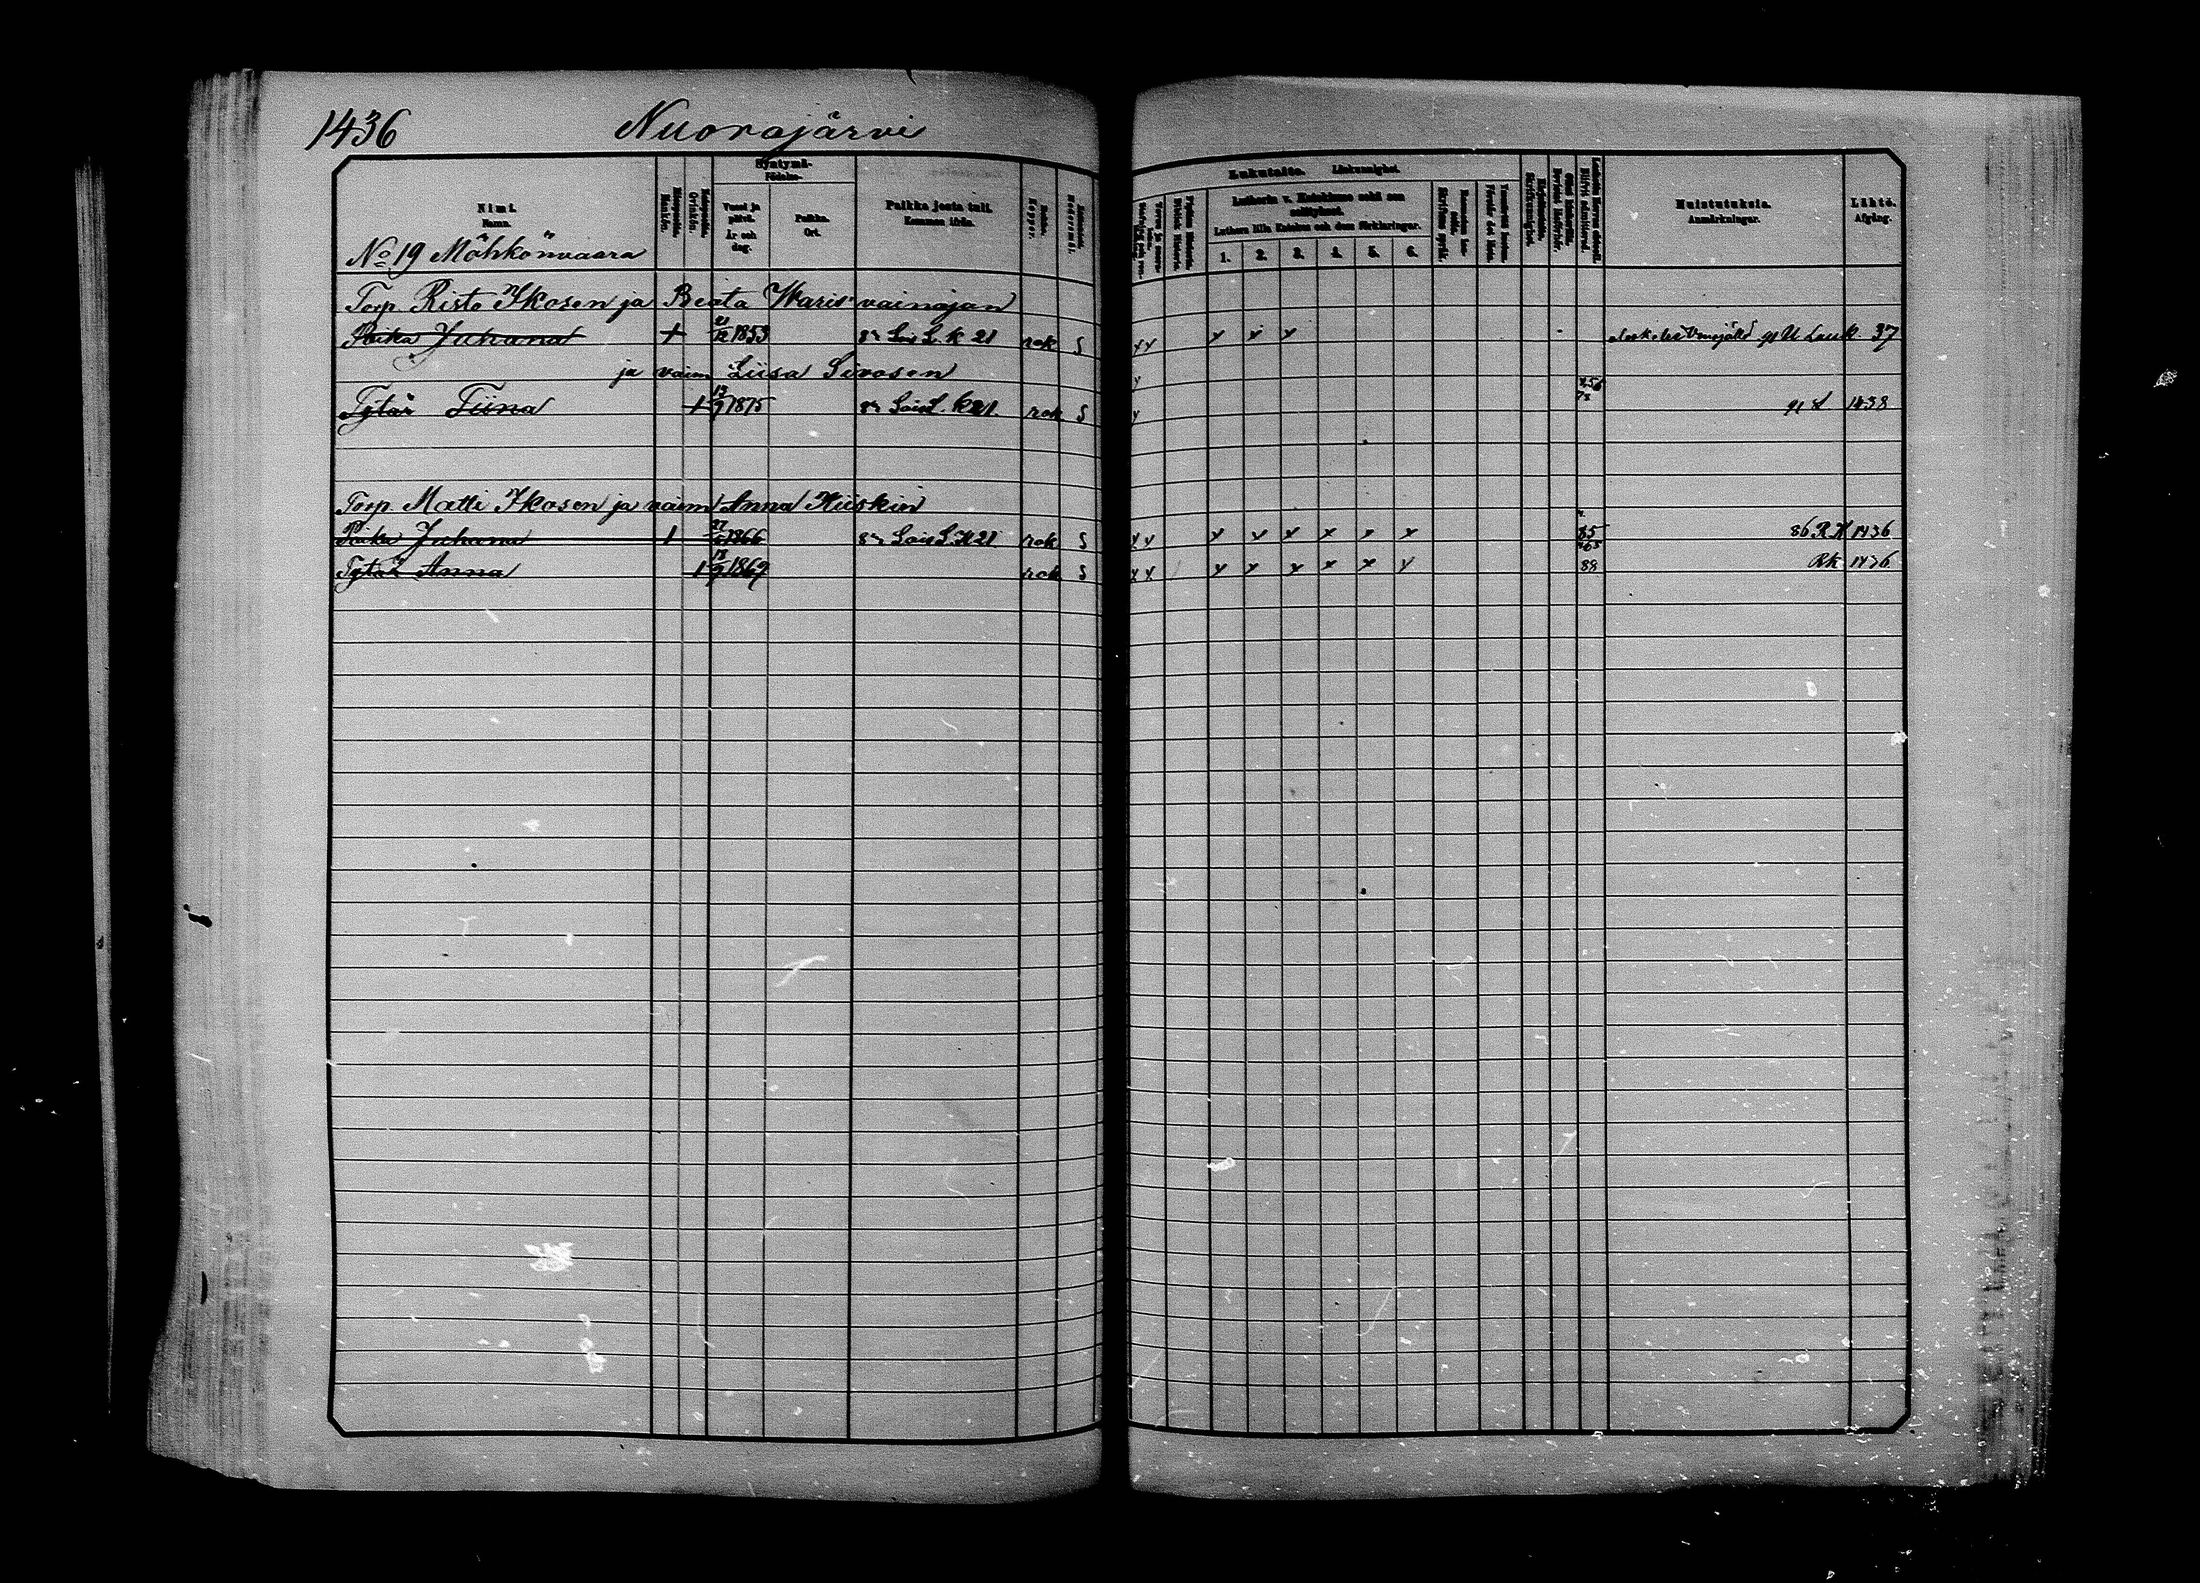 1436 Nuorajärvi
Syntymä-
Födelse-
Nimi. Namn.
Vuosi ja päivä. År och dag.
Paikka. Ort.
Paikka josta tuli. Kommen ifrån.
Rokko. Koppor.
Lukutaito. Läskunnighet.
Lutherin v. Katekismo sekä sen selitykset.
Luthers lilla Katekes och dess förklaringar.
1. 2. 3. 4. 5. 6.
Muistutuksia. Anmärkningar.
Lähtö. Afgång.
No 19 Möhkönvaara
Torp. Risto Ikosen ja Beata Waris vainajan
Poika Juhana + 21/12 1853 L. K 21 rok S x x x x x 91 U Luk. 37
ja vaim Liisa Sivosen
Tytär Tiina 1 13/9 1875 L. K 21. rok S x 91 1438
Torp. Matti Ikosen ja vaim Anna Kiiskin
Poika Juhana 1 1866 L. K 21 rok S x x x x x x x x 85 86 R K 1436
Tytär Anna 1 13/9 1869 rok S x x x x x x x x 88 Rk 1436